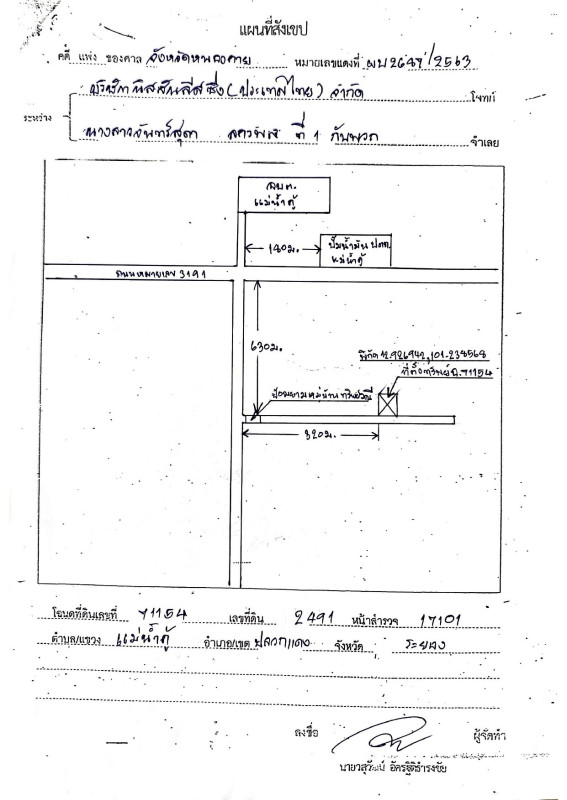 แผนที่สังเขป
คดี แพ่ง ของศาล จังหวัด หมายเลขแดงที่ ผบ /2563
บริษัท นิสสันลีสซิ่ง (ประเทศไทย) จำกัด โจทก์
ระหว่าง
นางสาวจันทร์สุดา ที่ 1 กับพวก จำเลย
อบต.
แม่น้ำคู้
180ม.
ปั๊มน้ำมัน ปตท.
แม่น้ำคู้
ถนนหมายเลข 3191
630ม.
พิกัด 12.926942,101.238568
ที่ตั้งทรัพย์ฉ.71154
ป้อมยามหมู่บ้าน
320ม.
โฉนดที่ดินเลขที่ 71154 เลขที่ดิน 2491 หน้าสำรวจ 17101
ตำบล/แขวง แม่น้ำคู้ อำเภอ/เขต ปลวกแดง จังหวัด ระยอง
ลงชื่อ ผู้จัดทำ
นายวสุวัฒน์ อัครฐิติธำรงชัย